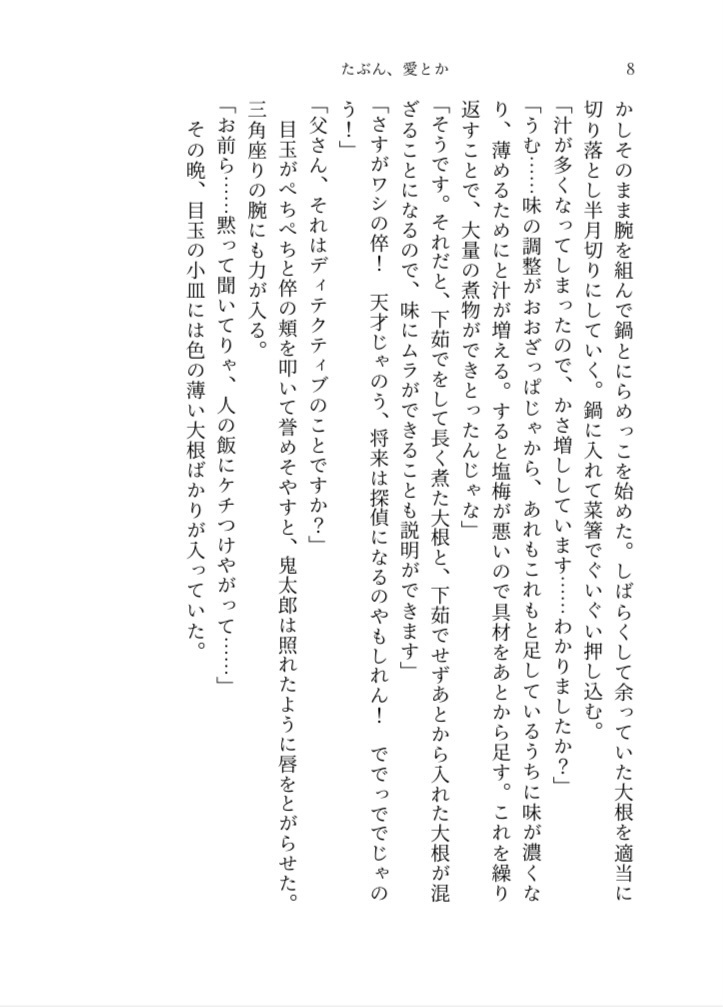 たぶん、愛とか
8
かしそのまま腕を組んで鍋とにらめっこを始めた。しばらくして余っていた大根を適当に
切り落とし半月切りにしていく。鍋に入れて菜箸でぐいぐい押し込む。
「汁が多くなってしまったので、かさ増ししています……わかりましたか？」
「うむ……味の調整がおおざっぱじゃから、あれもこれもと足しているうちに味が濃くな
り、薄めるためにと汁が増える。すると塩梅が悪いので具材をあとから足す。これを繰り
返すことで、大量の煮物ができとったんじゃな」
「そうです。それだと、下茹でをして長く煮た大根と、下茹でせずあとから入れた大根が混
ざることになるので、味にムラができることも説明ができます」
「さすがワシの倅！　天才じゃのう、将来は探偵になるのやもしれん！　ででっででじゃの
う！」
「父さん、それはディテクティブのことですか？」
　目玉がぺちぺちと倅の頬を叩いて誉めそやすと、鬼太郎は照れたように唇をとがらせた。
三角座りの腕にも力が入る。
「お前ら……黙って聞いてりゃ、人の飯にケチつけやがって……」
　その晩、目玉の小皿には色の薄い大根ばかりが入っていた。